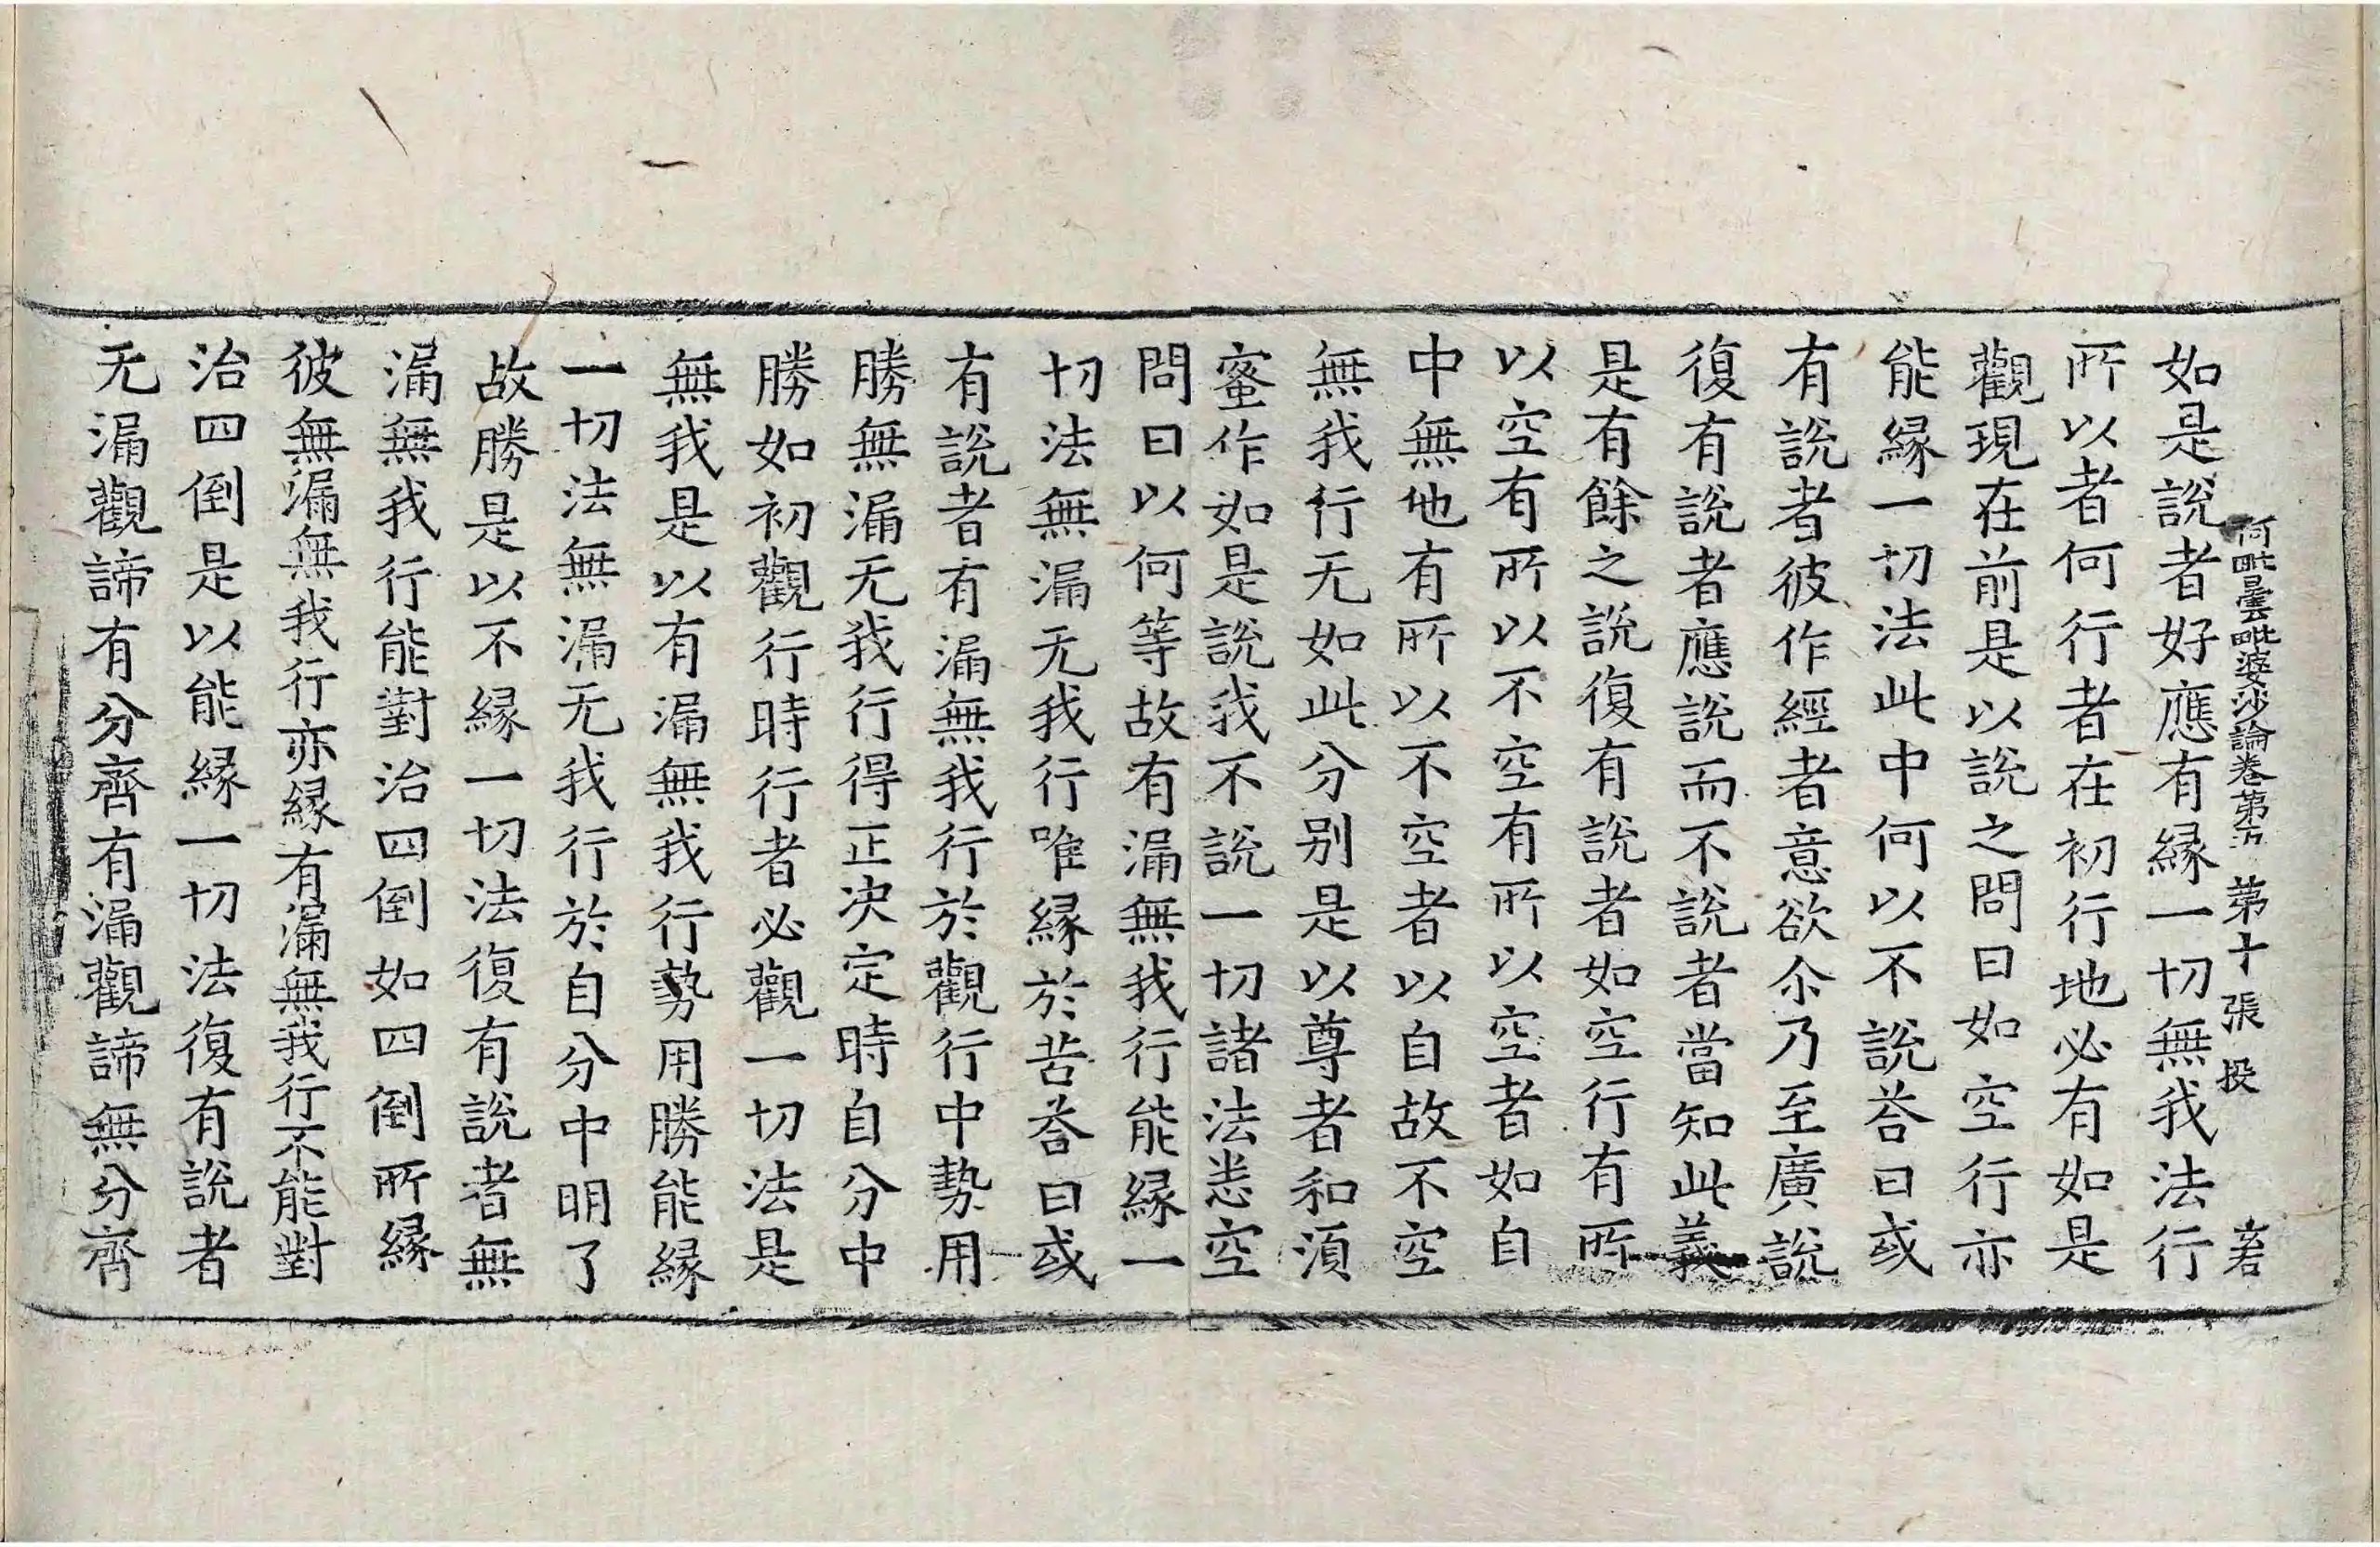 如是說者好應有緣一切無我法行
阿毗曇毗婆沙論卷第五 第十張 投
所以者何行者在初行地必有如是
觀現在前是以說之問曰如空行亦
能緣一切法此中何以不說荅曰或
有說者彼作經者意欲尒乃至廣說
復有說者應說而不說者當知此義
是有餘之說復有說者如空行有所
以空有所以不空有所以空者如自
中無他有所以不空者以自故不空
無我行无如此分别是以尊者和須
蜜作如是說我不說一切諸法恙空
問曰以何等故有漏無我行能緣一
切法無漏无我行唯緣於苦荅曰或
有說者有漏無我行於觀行中勢用
勝無漏无我行得正決定時自分中
勝如初觀行時行者必觀一切法是
無我是以有漏無我行勢用勝能緣
一切法無漏无我行於自分中明了
故勝是以不緣一切法復有說者無
漏無我行能對治四倒如四倒所緣
彼無漏無我行亦緣有漏無我行不能對
治四倒是以能緣一切法復有說者
无漏觀諦有分齊有漏觀諦無分齊